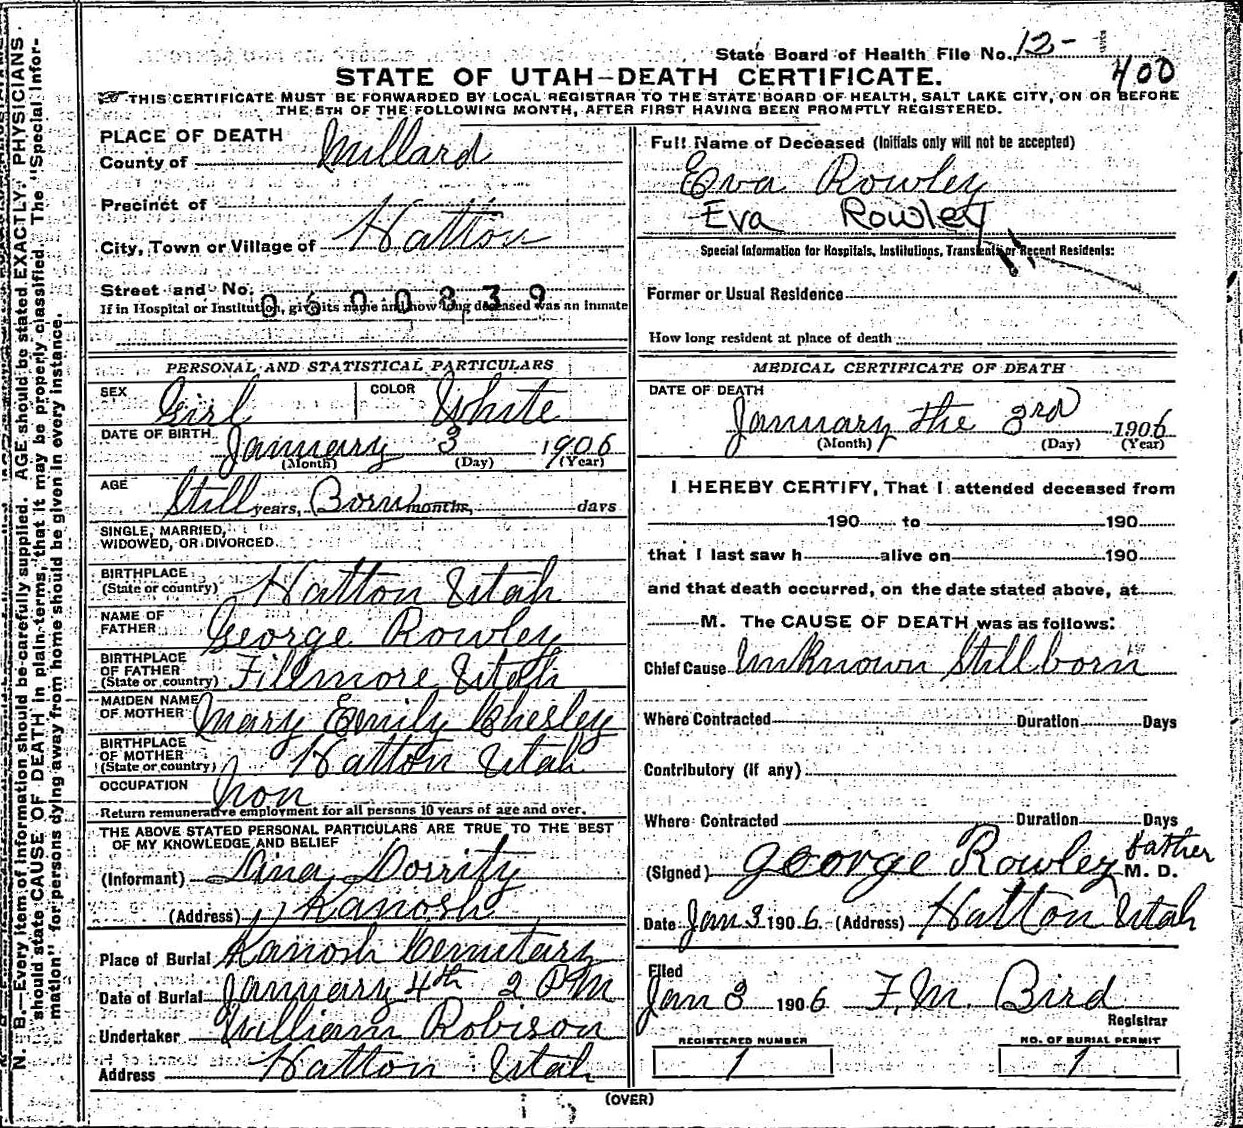 State Board of Health File No. 12-
400
STATE OF UTAH—DEATH CERTIFICATE.
THIS CERTIFICATE MUST BE FORWARDED BY LOCAL REGISTRAR TO THE STATE BOARD OF HEALTH, SALT LAKE CITY, ON OR BEFORE
THE 5TH OF THE FOLLOWING MONTH, AFTER FIRST HAVING BEEN PROMPTLY REGISTERED.
PLACE OF DEATH
County of Millard
Precinct of
City, Town or Village of Hatton
Street and No.
0600839
If in Hospital or Institution, give its name and how long deceased was an inmate
PERSONAL AND STATISTICAL PARTICULARS
SEX Girl COLOR White
DATE OF BIRTH January 3 1906
(Month) (Day) (Year)
AGE Still years, Born months, days
SINGLE, MARRIED,
WIDOWED, OR DIVORCED
BIRTHPLACE
(State or country) Hatton Utah
NAME OF
FATHER George Rowley
BIRTHPLACE
OF FATHER
(State or country) Fillmore Utah
MAIDEN NAME
OF MOTHER Mary Emily Chesley
BIRTHPLACE
OF MOTHER
(State or country) Hatton Utah
OCCUPATION Non
Return remunerative employment for all persons 10 years of age and over.
THE ABOVE STATED PERSONAL PARTICULARS ARE TRUE TO THE BEST
OF MY KNOWLEDGE AND BELIEF
(Informant) Dorrity
(Address) Kanosh
Place of Burial Kanosh Cemetary
Date of Burial January 4th 2 PM
Undertaker William Robison
Address Hatton Utah
Full Name of Deceased (Initials only will not be accepted)
Eva Rowley
Eva Rowley
Special Information for Hospitals, Institutions, Transients or Recent Residents:
Former or Usual Residence
How long resident at place of death
MEDICAL CERTIFICATE OF DEATH
DATE OF DEATH
January the 3rd 1906
(Month) (Day) (Year)
I HEREBY CERTIFY, That I attended deceased from
190 to 190
that I last saw h alive on 190
and that death occurred, on the date stated above, at
M. The CAUSE OF DEATH was as follows:
Chief Cause Unknown Stillborn
Where Contracted Duration Days
Contributory (if any)
Where Contracted Duration Days
(Signed) George Rowley father M. D.
Date Jan 3 1906 (Address) Hatton Utah
Filed
Jan 3 1906 F. M. Bird
Registrar
REGISTERED NUMBER NO. OF BURIAL PERMIT
1 1
(OVER)
N. B.—Every item of information should be carefully supplied. AGE should be stated EXACTLY. PHYSICIANS
should state CAUSE OF DEATH in plain terms, that it may be properly classified. The "Special Infor-
mation" for persons dying away from home should be given in every instance.